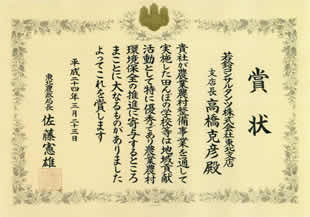 賞状
若鈴コンサルタンツ株式会社東北支店
支店長 高橋克彦殿
貴社が農業農村整備事業を通して
実施した田んぼの学校等は地域貢献
活動として特に優秀であり農業農村
環境保全の推進に寄与するところ
まことに大なるものがありました
よってこれを賞します
平成二十四年三月二十三日
東北農政局長 佐藤憲雄